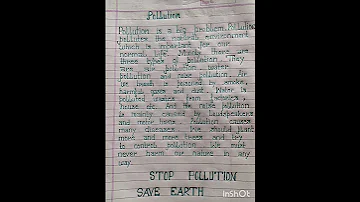 Pollution
Pollution is a big problem. Pollution
pollutes the natural environment
which is important for our
normal life. Mainly there are
three types of pollution. They
are air pollution, water
pollution and noise pollution. Air
is poisoned by smoke,
harmful gases and dust. Water is
polluted wastes from factories,
house etc. And the noise pollution
is mainly caused by loudspeakers
and noise horns. Pollution causes
many diseases. We should plant
more and more trees and try
to control pollution. We must
never harm our nature in any
way.
STOP POLLUTION
SAVE EARTH
InShOt